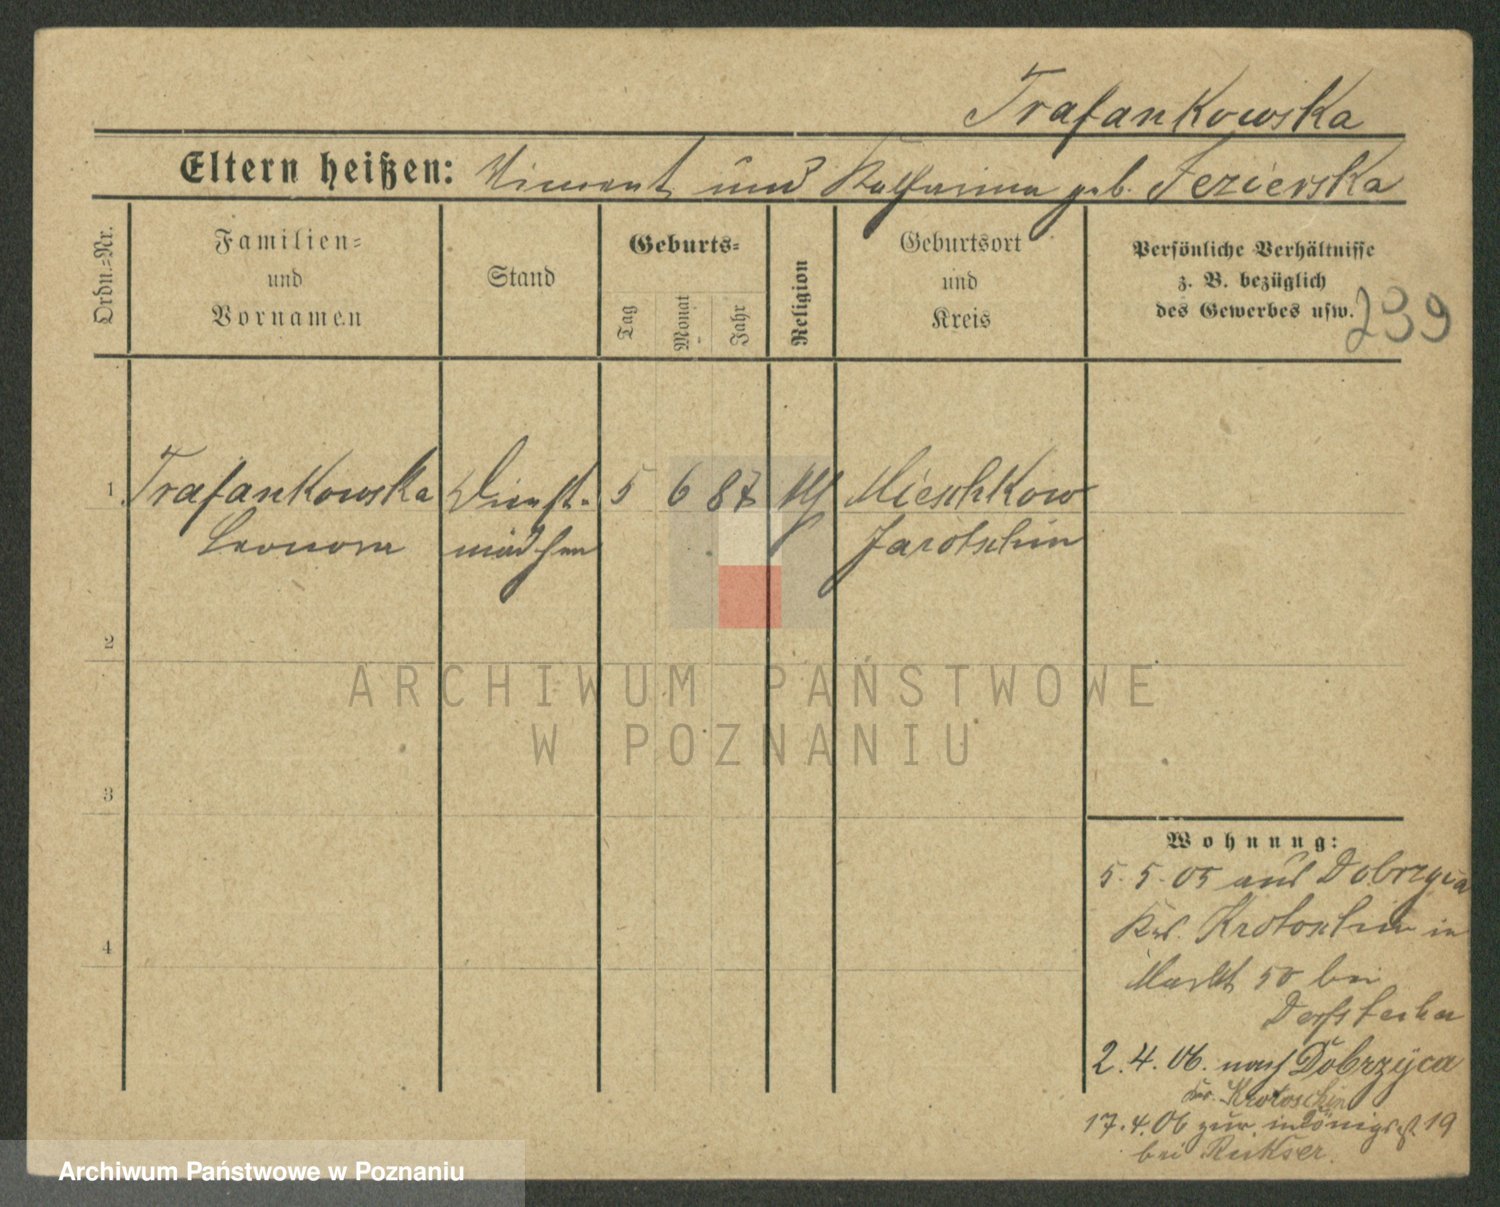 Trafankowska
Eltern heißen: Vincent und Katharina geb. Jezierska
Ordn.-Nr.
Familien-
und
Vornamen
Stand
Geburts-
Tag
Monat
Jahr
Religion
Geburtsort
und
Kreis
Persönliche Verhältnisse
z. B. bezüglich
des Gewerbes usw.
239
1 Trafankowska Dienst- 5 6 87 Mieschkow
Leonora mädchen Jarotschin
2
3
4
Wohnung:
5. 5. 05 aus Dobrzyca
Krs. Krotoschin in
Markt 50 bei
2. 4. 06. nach Dobrzyca
Kr. Krotoschin
17. 4. 06 zur. in Königs 19
bei
ARCHIWUM PAŃSTWOWE
W POZNANIU
Archiwum Państwowe w Poznaniu